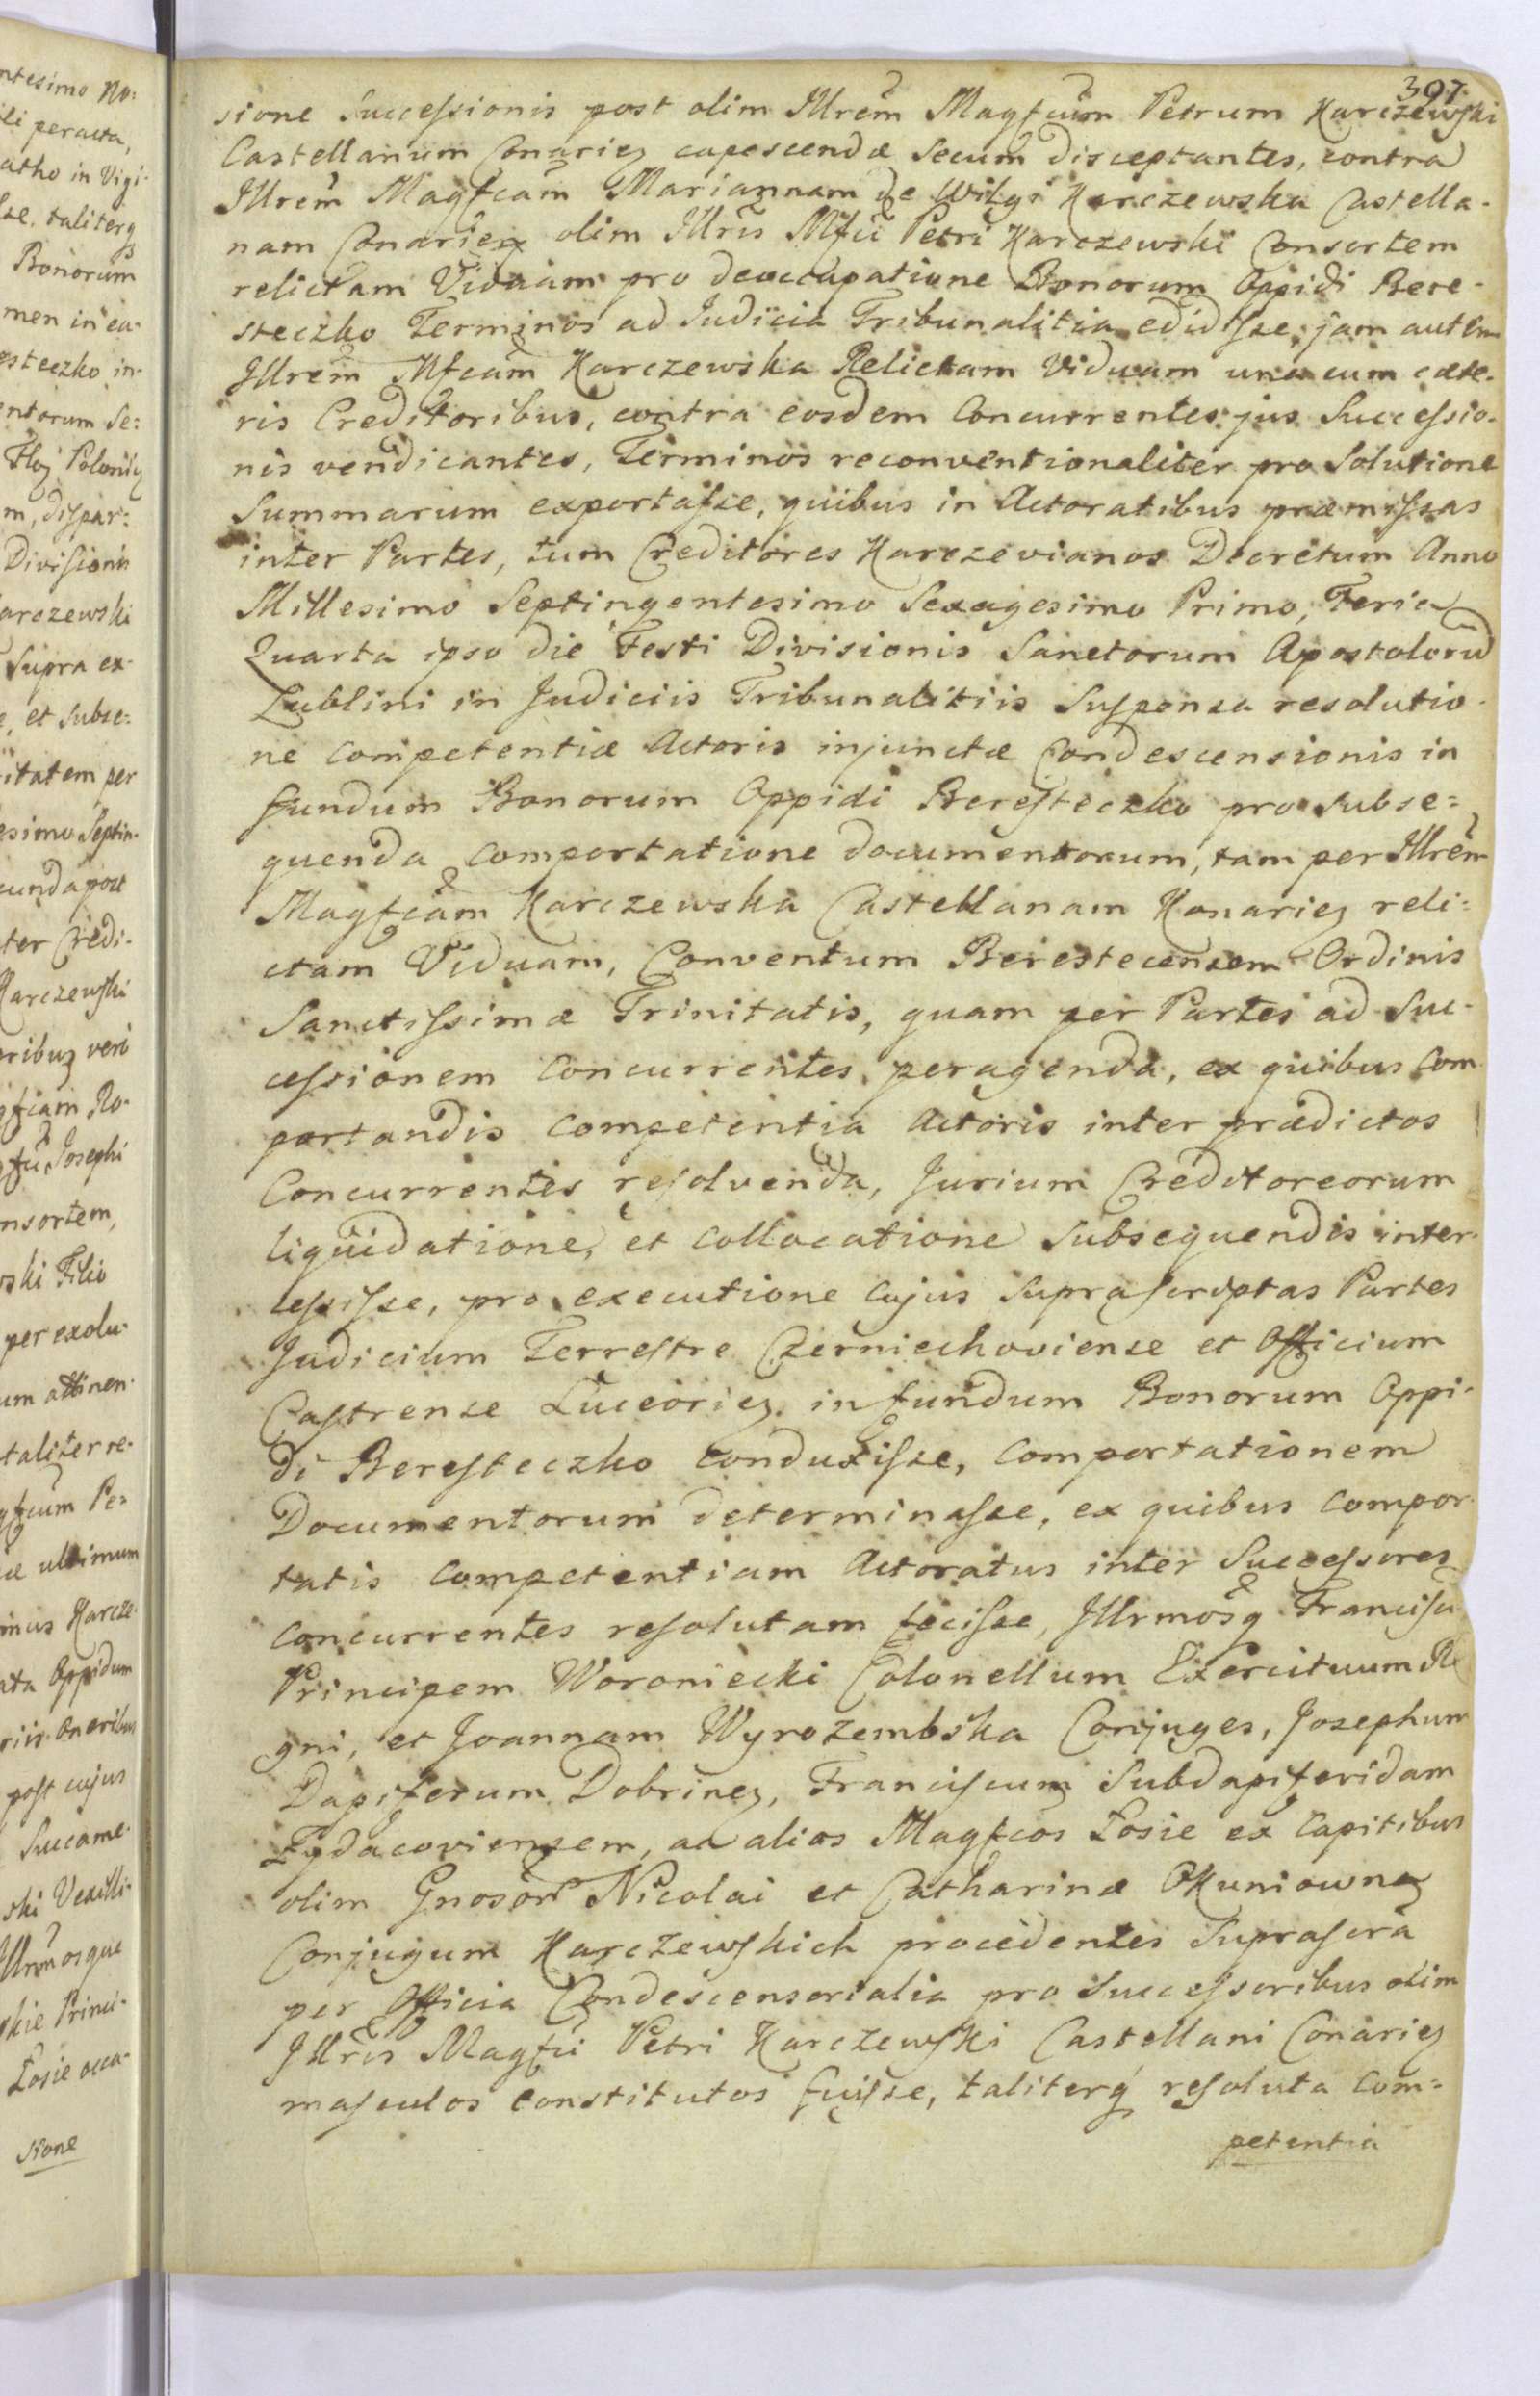 307.
sione Successionis post olim Illrem Magfcum Petrum Karczewski
Castellanum Conariens capescendæ secum disceptantes, contra
Illrem Magfcam Mariannam de Wilgi Karczewska Castella-
nam Conariens olim Illris Mfci Petri Karczewski Consortem
relictam Viduam pro deoccupatione Bonorum Oppidi Bere-
steczko Terminos ad Judicia Tribunalitia edidisse, jam autem
Illrem Mfcam Karczewska Relictam Viduam una cum cæte-
ris Creditoribus, contra eosdem Concurrentes jus Successio-
nis vendicantes, Terminos reconventionaliter pro Solutione
Summarum exportasse, quibus in Actoratibus præmissas
inter Partes, tum Creditores Karczevianos Decretum Anno
Millesimo Septingentesimo Sexagesimo Primo, Feria
Quarta ipso die Festi Divisionis Sanctorum Apostolorū
Lublini in Judiciis Tribunalitiis Suspensa resolutio-
ne Competentiæ Actoris injunctæ Condescensionis in
fundum Bonorum Oppidi Beresteczko pro subse=
quenda Comportatione documentorum, tam per Illrem
Magfcam Karczewska Castellanam Konariens reli=
ctam Viduam, Conventum Berestecensem Ordinis
Sanctissimæ Trinitatis, quam per Partes ad Suc-
cessionem Concurrentes, peragenda, ex quibus Com
portandis Competentia Actoris inter prædictos
Concurrentes resolvenda, Jurium Creditoreorum
liquidatione, et Collocatione Subsequendis inter-
cessisse, pro executione Cujus Suprascriptas Partes
Judicium Terrestre Czerniechoviense et Officium
Castrense Luceoriens in fundum Bonorum Oppi-
di Beresteczko Conduxisse, Comportationem
Documentorum determinasse, ex quibus Compor-
tatis Competentiam Actoratus inter Successores
Concurrentes resolutam fecisse, Illrmosq Francisc
Principem Woroniecki Colonellum Exercituum Re
gni, et Joannam Wyrozembska Conjuges, Josephum
Dapiferum Dobrinens, Franciscum Subdapiferidam
Zydacoviensem, ac alios Magfcos Łosie ex Capitibus
olim Gnosor Nicolai et Catharinæ Okuniowna
Conjugum Karczewskich procedentes Suprascra
per Officia Condescensorialia pro Successoribus olim
Illris Magfci Petri Karczewski Castellani Conariens
masculos Constitutos fuisse, taliterq resoluta Com=
petentia